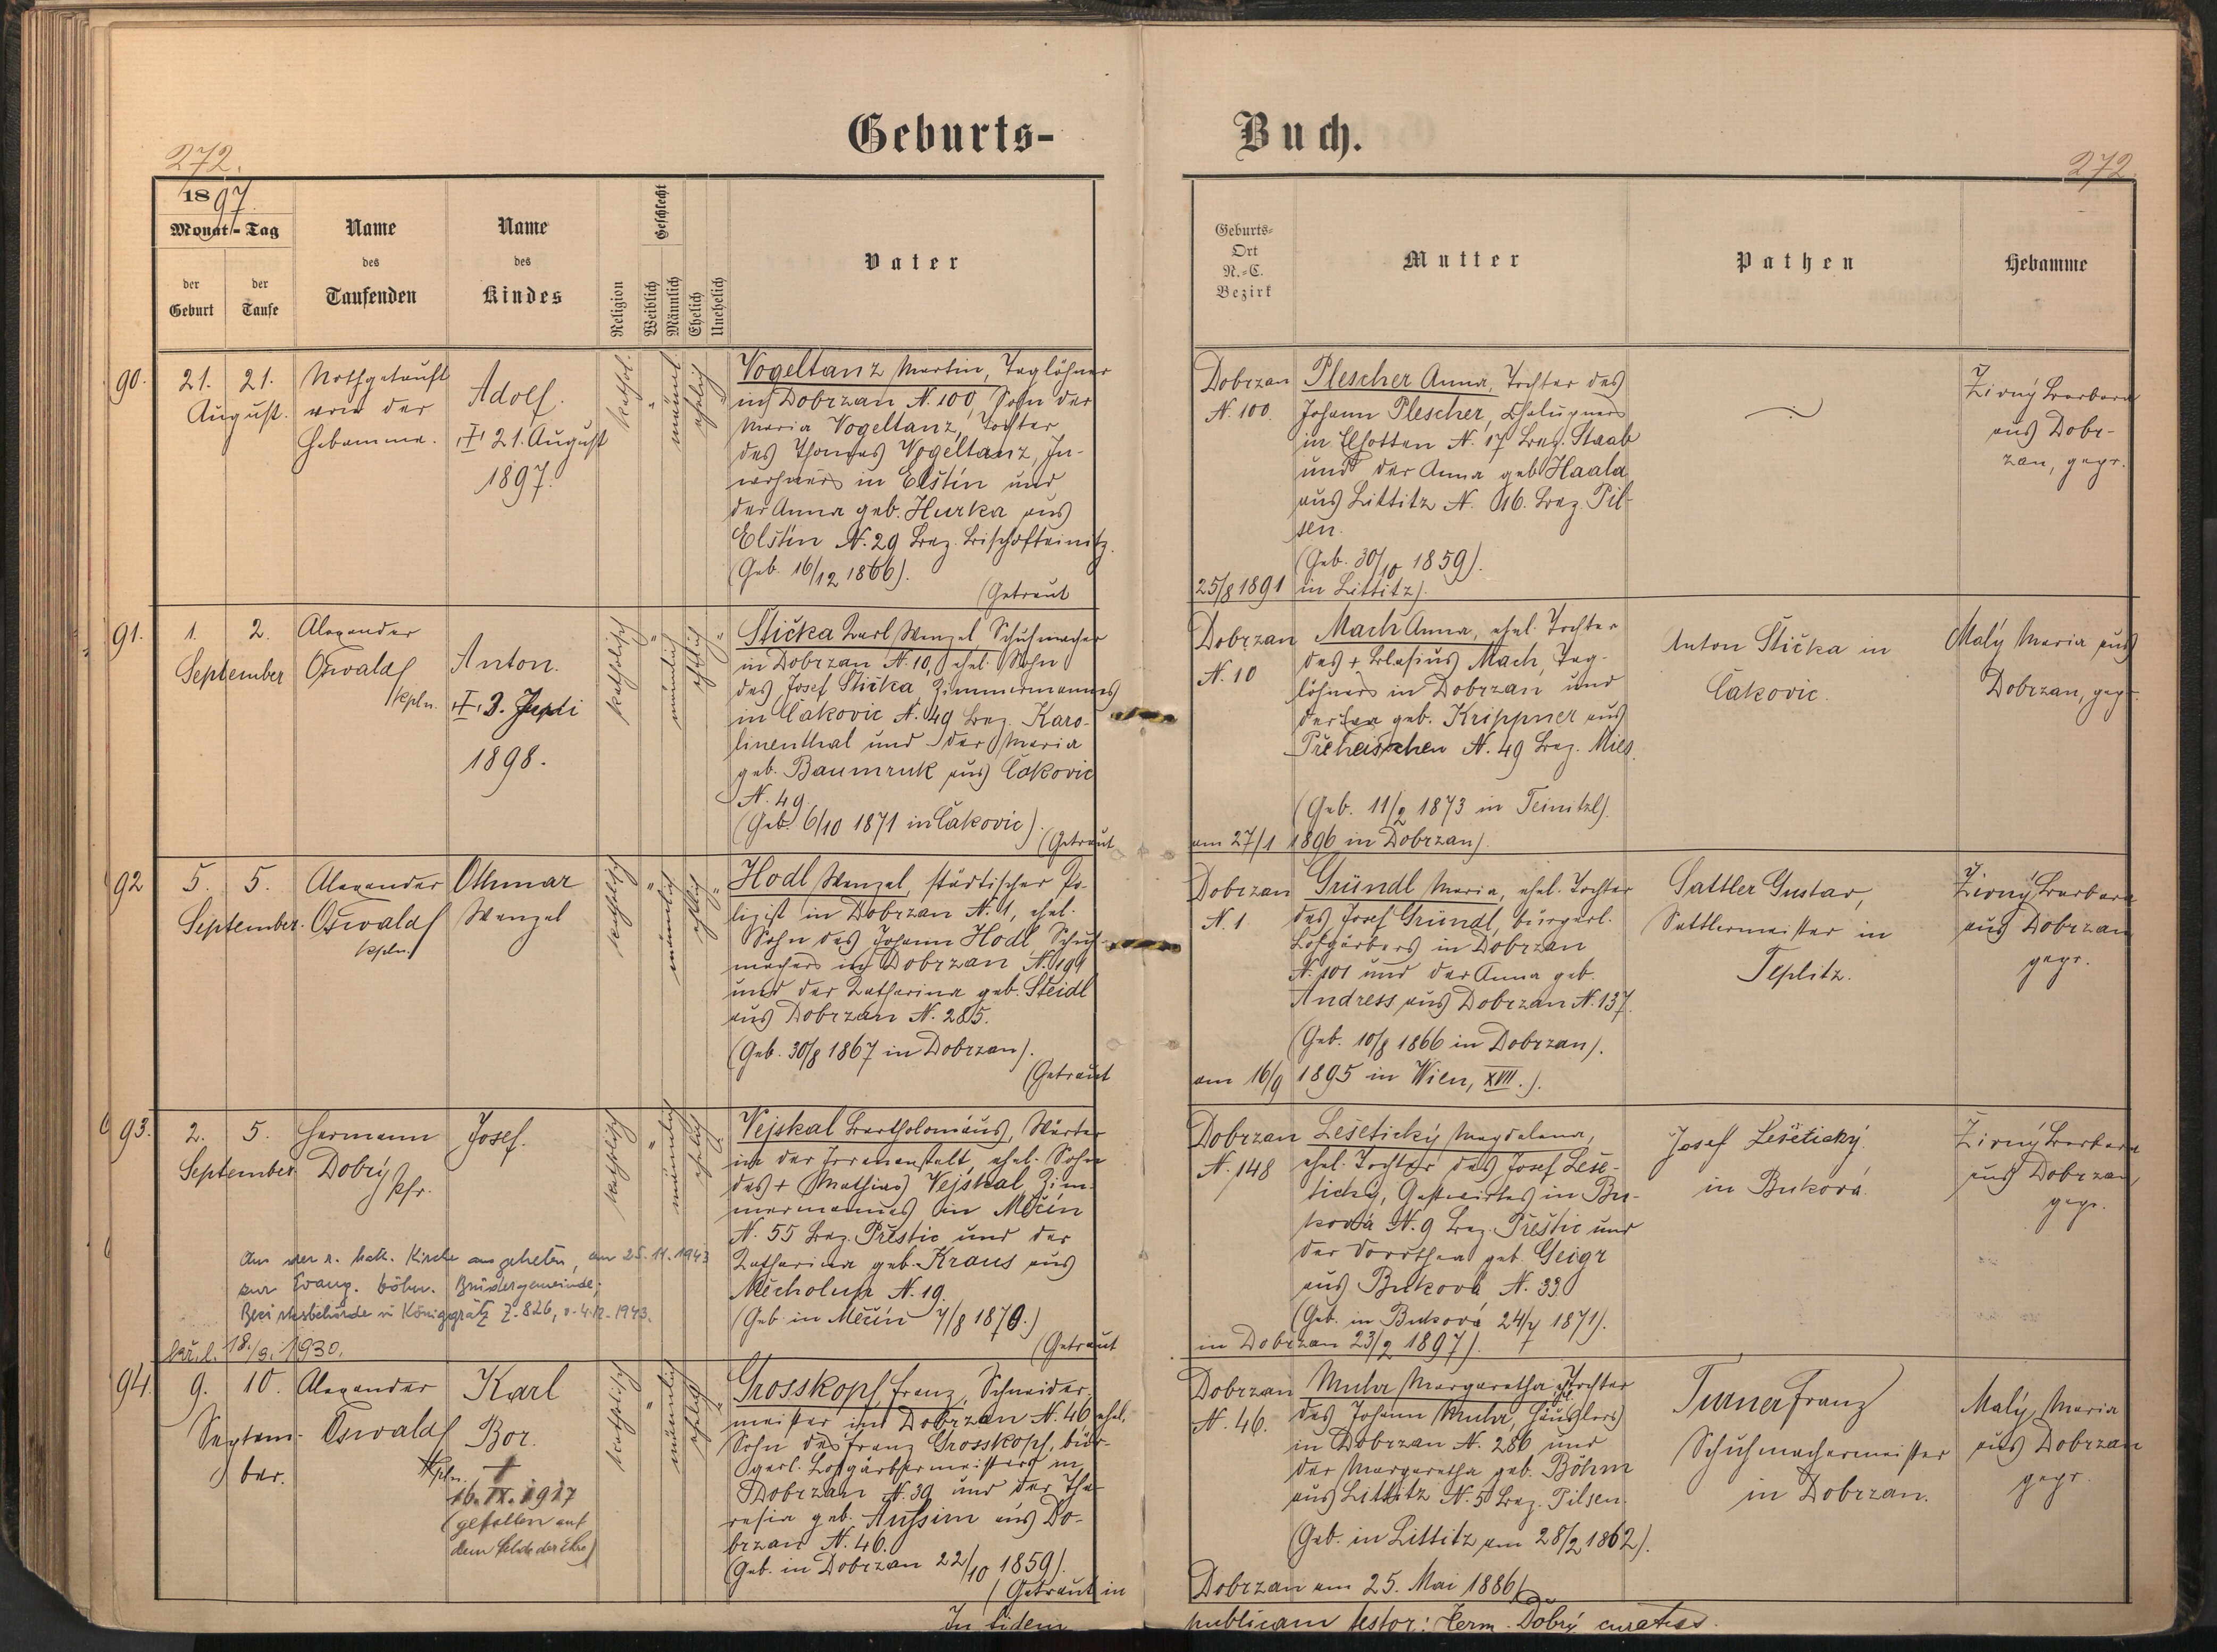 Geburts-
Buch.
272.
272.
1897.
Monat - Tag
der Geburt
der Taufe
Name des Taufenden
Name des Kindes
Religion
Geschlecht
Weiblich
Männlich
Ehelich
Unehelich
Vater
Geburts-
Ort
N.-C.
Bezirk
Mutter
Pathen
Hebamme
90.
21. 21.
August.
Nothgetauft
von der
Hebamme.
Adolf.
21. August
1897.
kathol.
männl.
ehelich
Vogeltanz Martin, Taglöhner
in Dobrzan N. 100, Sohn der
Maria Vogeltanz, Tochter
des Thomas Vogeltanz, In-
wohners in Elštin und
der Anna geb. Hurka aus
Elštin N. 29 Bez. Bischofteinitz.
(Geb. 16/12 1866).
(Getraut
Dobrzan
N. 100.
25/8 1891
Plescher Anna, Tochter des
Johann Plescher, Chalupners
in Elhotten N. 17 Bez. Staab
und der Anna geb. Haala
aus Littitz N. 16. Bez. Pil-
sen.
(Geb. 30/10 1859).
in Littitz).
Zirný Barbara
aus Dobr-
zan, gepr.
91.
1. 2.
September
Alexander
Oswald
kpln.
Anton.
1898.
katholisch
männlich
ehelich
Stička Karl Wenzel Schuhmacher
in Dobrzan N. 10, ehel. Sohn
des Josef Stička Zimmermannes
in Čakovic N. 49 Bez. Karo-
linenthal und der Maria
geb. Baumruk aus Čakovic
N. 49.
(Geb. 6/10 1871 in Čakovic).
(Getraut
Dobrzan
N. 10
am 27/1
Mach Anna, ehel. Tochter
des + Blasius Mach, Tag-
löhners in Dobrzan und
der Eva geb. Krippner aus
Přeheischen N. 49 Bez. Mies.
(Geb. 11/2 1873 in Teinitzl).
1896 in Dobrzan).
Anton Stička in
Čakovic.
Malý Maria aus
Dobrzan, gepr.
92
5. 5.
September.
Alexander
Oswald
kpln.
Othmar
Wenzel
katholisch
männlich
ehelich
Hodl Wenzel, städtischer Po-
lizist in Dobrzan N. 1, ehel.
Sohn des Johann Hodl Schuh-
machers in Dobrzan N. 199
und der Katharina geb. Steidl
aus Dobrzan N. 285.
(Geb. 30/8 1867 in Dobrzan).
(Getraut
Dobrzan
N. 1.
am 16/9
Gründl Maria, ehel. Tochter
des Josef Gründl, bürgerl.
Lohgärbers in Dobrzan
N. 101 und der Anna geb.
Andress aus Dobrzan N. 137.
(Geb. 10/8 1866 in Dobrzan).
1895 in Wien, XVII.).
Sattler Gustav,
Sattlermeister in
Teplitz.
Zirný Barbara
aus Dobrzan
gepr.
93.
2. 5.
September
Hermann
Dobrý
Pfr.
Josef.
katholisch
männlich
ehelich
Vejskal Bartholomäus, Wärter
in der Irrenanstalt, ehel. Sohn
des + Mathias Vejskal Zim-
mermannes in Měčín
N. 55 Bez. Přestic und der
Katharina geb. Kraus aus
Měcholup N. 19.
(Geb. in Měčín 7/8 1870.)
(Getraut
Aus der r. kath. Kirche ausgetreten, am 25.11.1943
zur Evang. böhm. Brüdergemeinde;
Bezirksbehörde in Königgrätz Z. 826, v. 4.12.1943.
1930.
Dobrzan
N. 148
Lešetický Magdalena,
ehel. Tochter des Josef Leše-
tický, Gastwirtes in Bu-
ková N. 9 Bez. Přeštic und
der Dorothea geb. Geigr
aus Buková N. 33.
(Geb. in Buková 24/7 1871).
in Dobrzan 23/2 1897).
Josef Lešetický
in Buková.
Zirný Barbara
aus Dobrzan,
gepr.
94.
9. 10.
Septem-
ber.
Alexander
Oswald
kpln.
Karl
Bor.
16. IX. 1917
(gefallen auf
dem Felde der Ehre)
katholisch
männlich
ehelich
Grosskopf Franz, Schneider-
meister in Dobrzan N. 46 ehel.
Sohn des Franz Grosskopf, bür-
gerl. Lohgärbermeisters in
Dobrzan N. 39 und der The-
resia geb. Aussim aus Do-
brzan N. 46.
(Geb. in Dobrzan 22/10 1859).
(Getraut in
Dobrzan
N. 46.
Muhr Margaretha, Tochter
des Johann Muhr, Häuslers
in Dobrzan N. 286 und
der Margaretha geb. Böhm
aus Littitz N. 5 Bez. Pilsen.
(Geb. in Littitz am 28/2 1862).
Dobrzan am 25. Mai 1886).
Turner Franz
Schuhmachermeister
in Dobrzan.
Malý Maria
aus Dobrzan
gepr.
In fidem
publicam testor: Herm. Dobrý curatus.